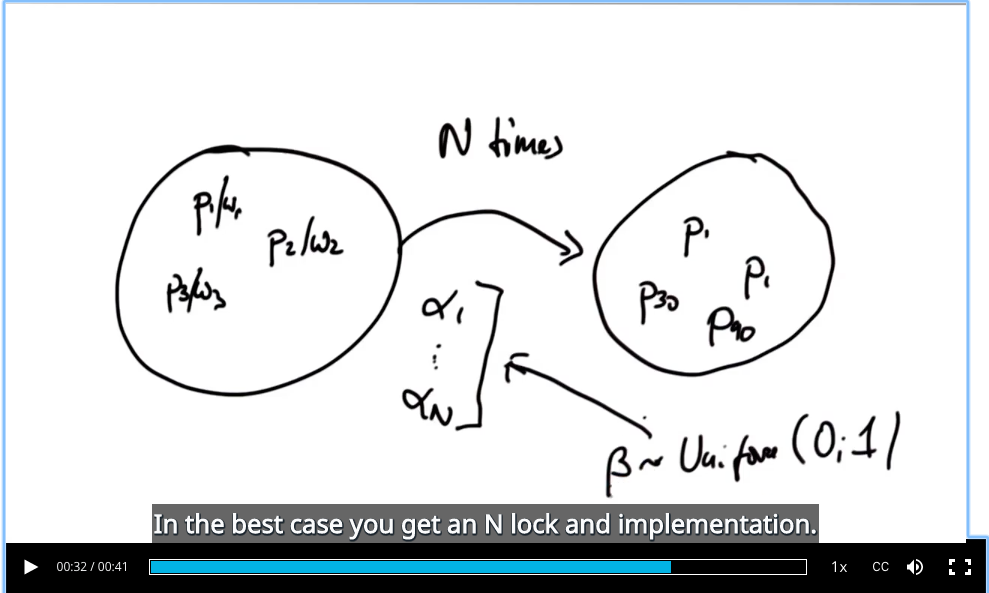 N times
p1/w1
p2/w2
p3/w3
p1
p1
p30
p90
α1
⋮
αN
β ~ Uniform (0; 1)
In the best case you get an N lock and implementation.
00:32 / 00:41
1x
CC